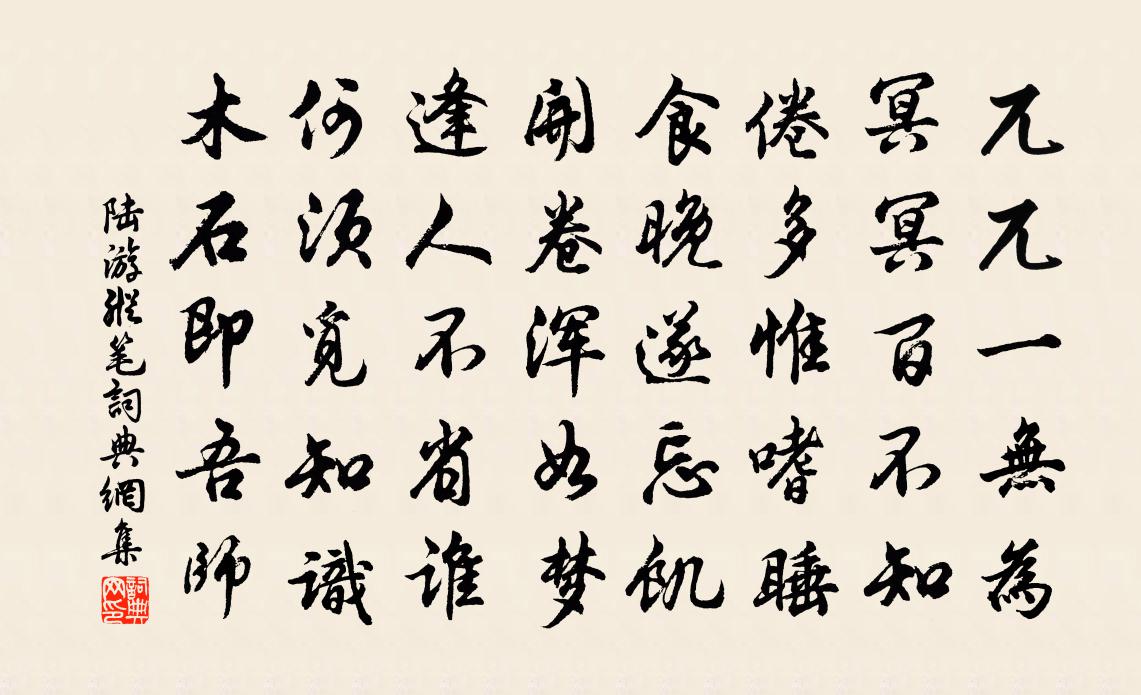 兀兀一無為
冥冥百不知
倦多惟嗜睡
食晚遂忘飢
開卷渾如梦
逢人不省誰
何須覓知識
木石即吾師
陆游縱笔詞典網集
詞典網印